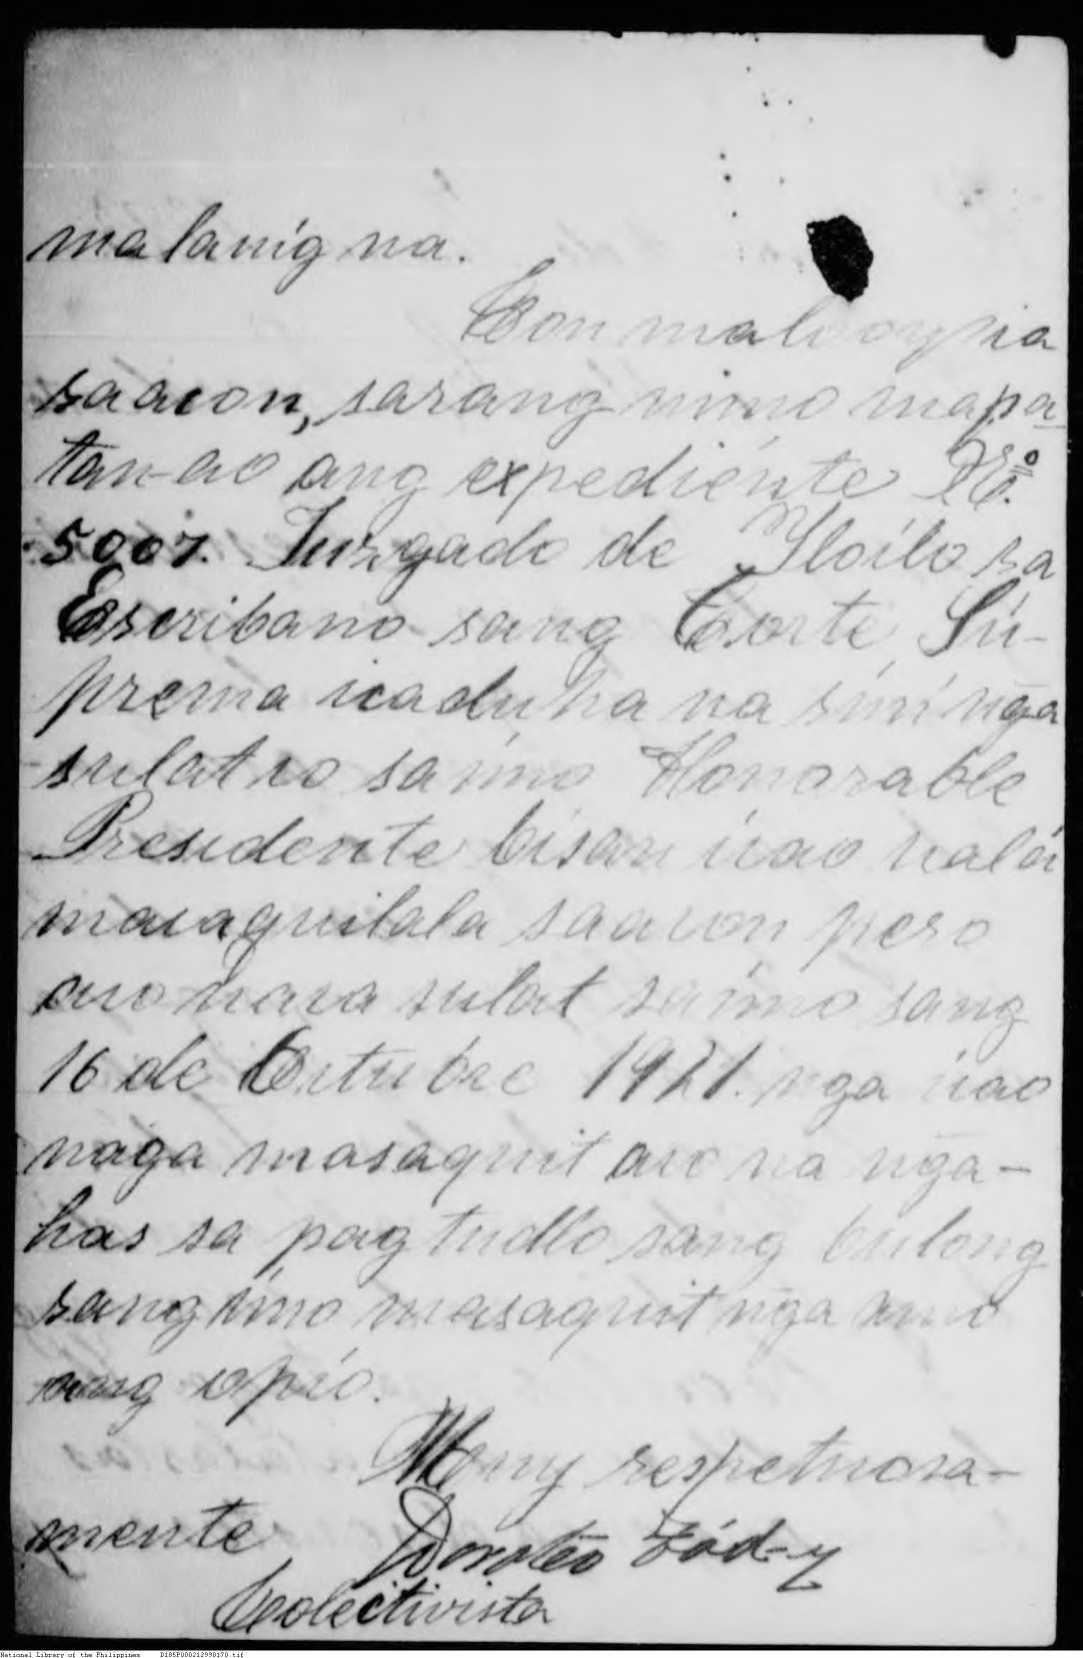 malauig na.
Con maluoy ka
saacon, sarang nimo mapa
tan-ao ang expediente No.
5007. Juzgado de Iloilo sa
Escribano sang Corte Su-
prema icaduha na sini nga
sulat co saimo Honorable
Presidente bisan icao uala
macaquilala saacon pero
aco naca sulat saimo sang
16 de Octubre 1921. nga icao
naga masaquit aco na nga-
has sa pag tudlo sang bulong
sang imo masaquit nga amo
ang opio.
Muy respetuosa-
mente
Doroteo
Colectivista
National Library of the Philippines D185P000212998170.tif